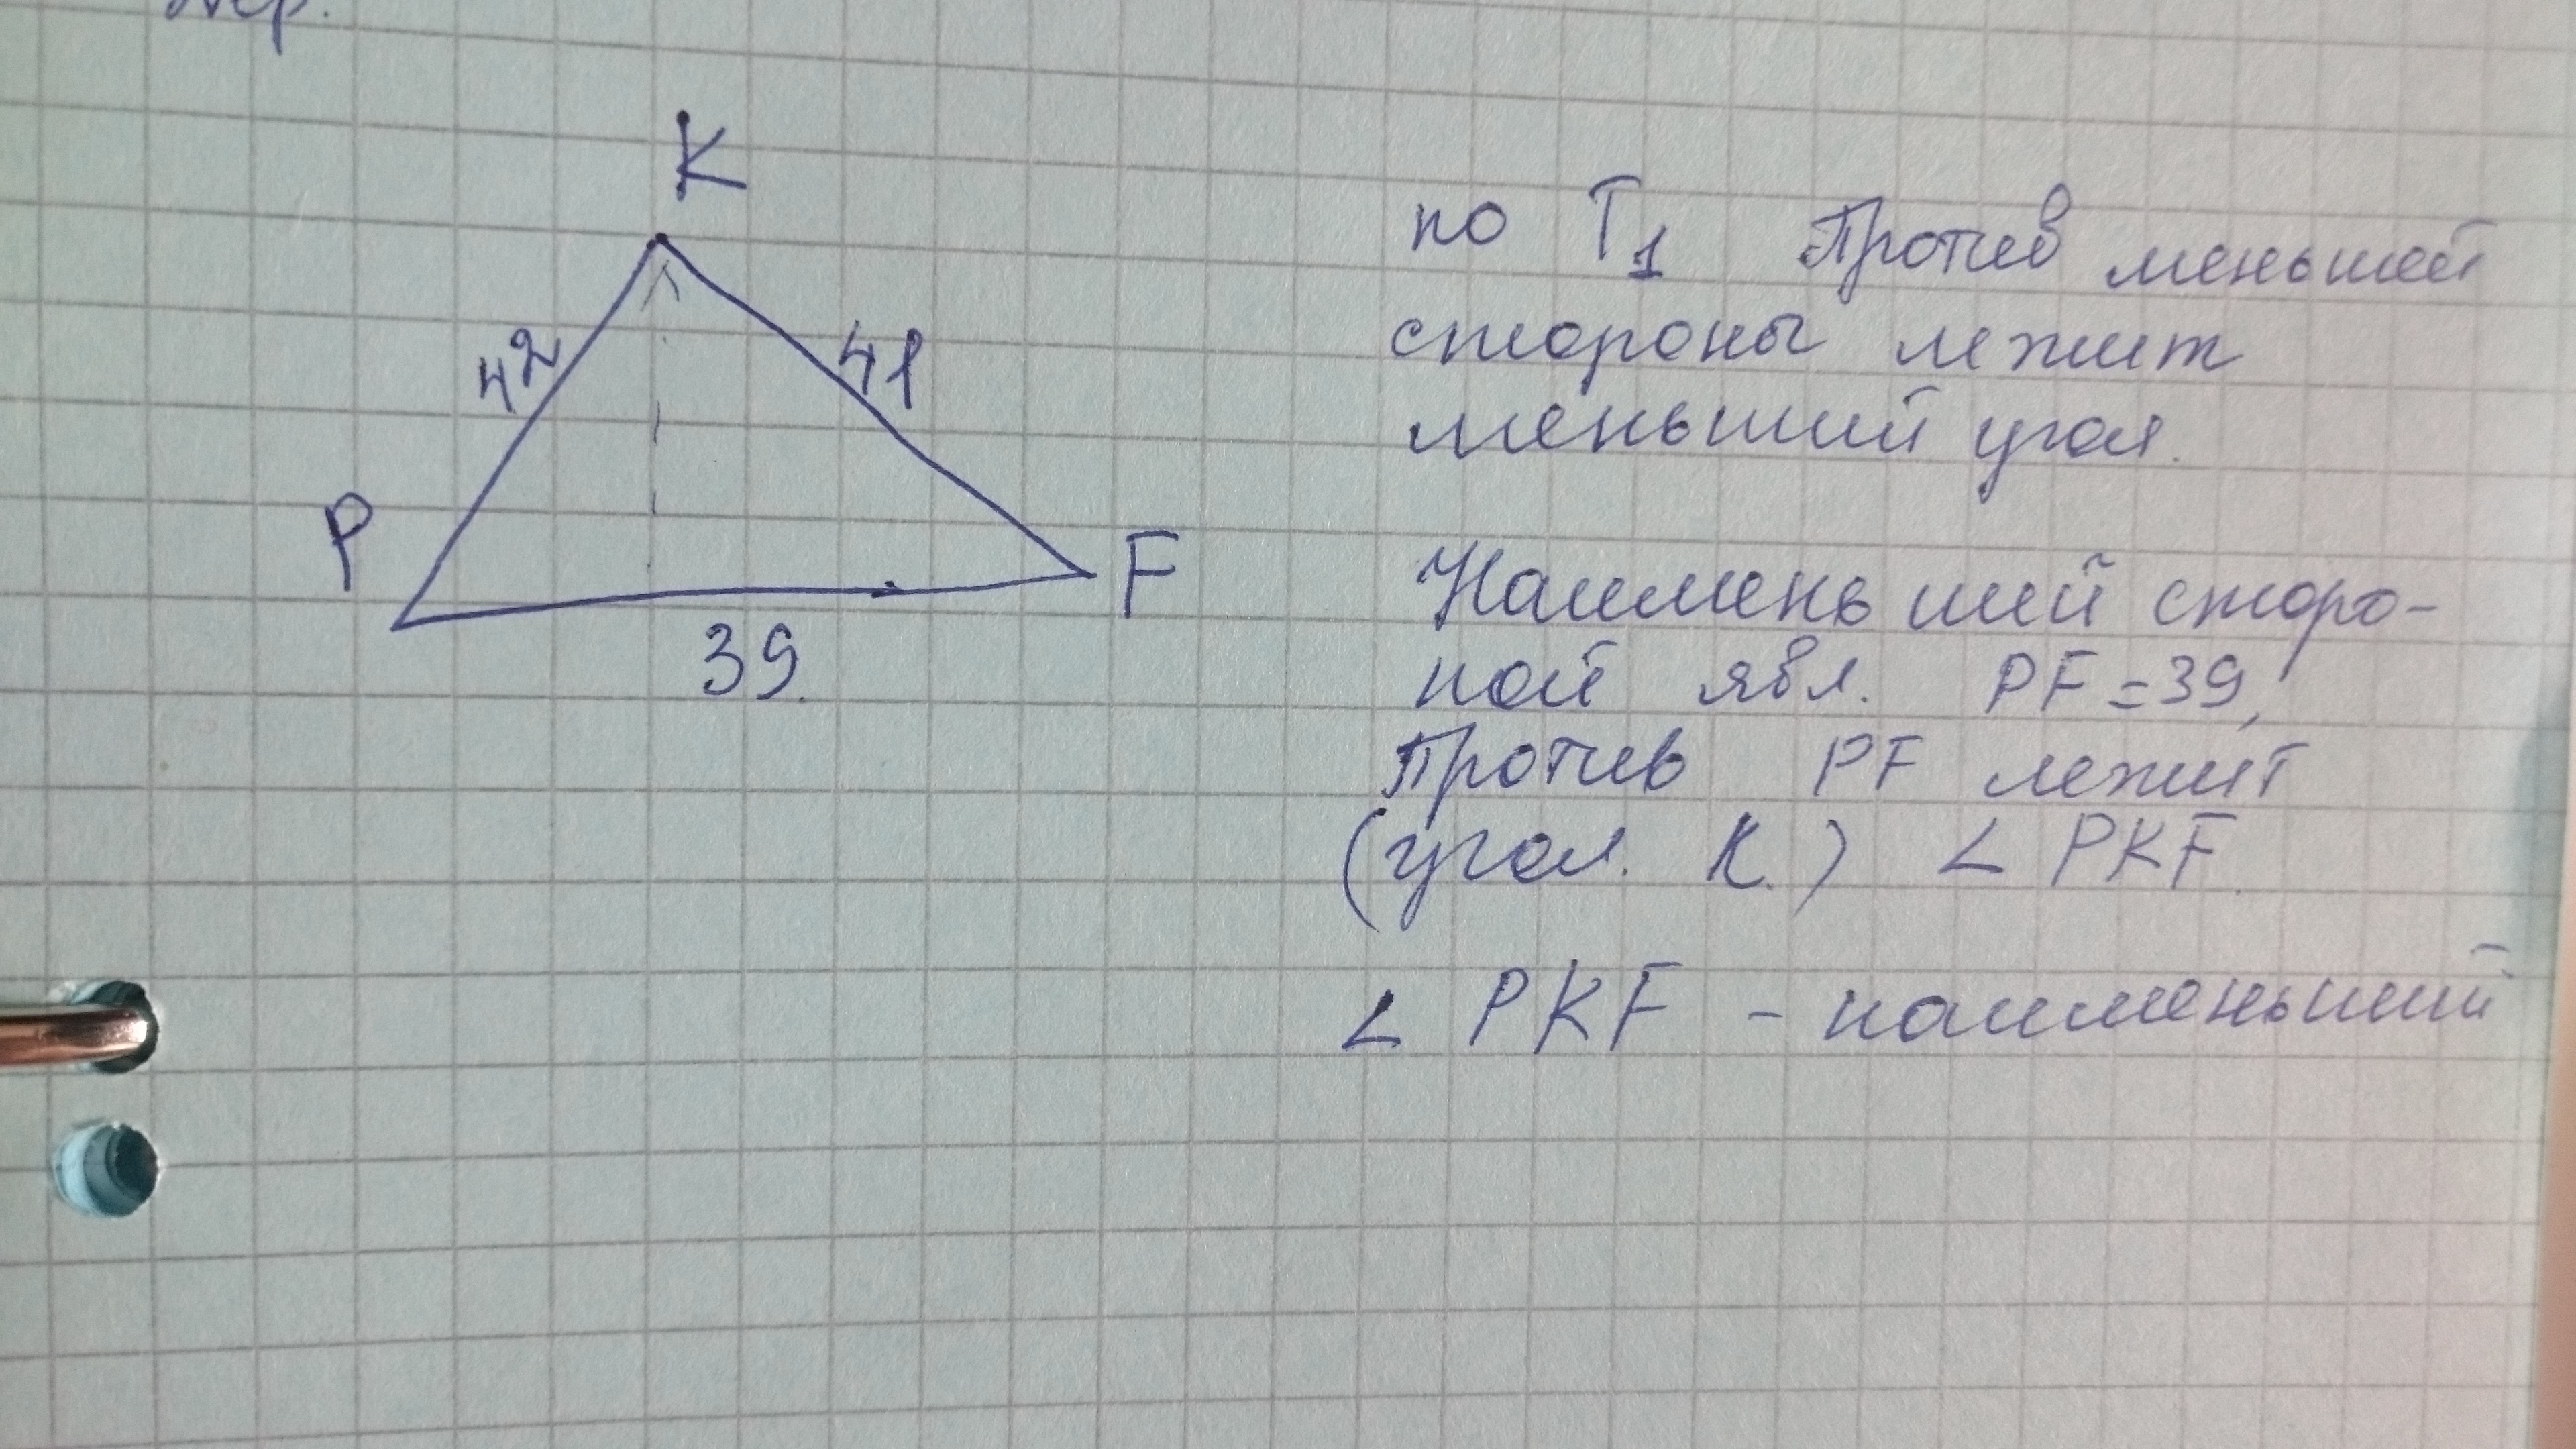 K
42
41
P
F
39.
по Т1 Против меньшей
стороны лежит
меньший угол.
Наименьший сторо-
ной явл. PF = 39,
против PF лежит
(угол. К.) ∠ PKF.
∠ PKF – наименьший